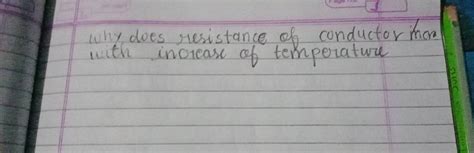 why does resistance of conductor
with increase of temperature